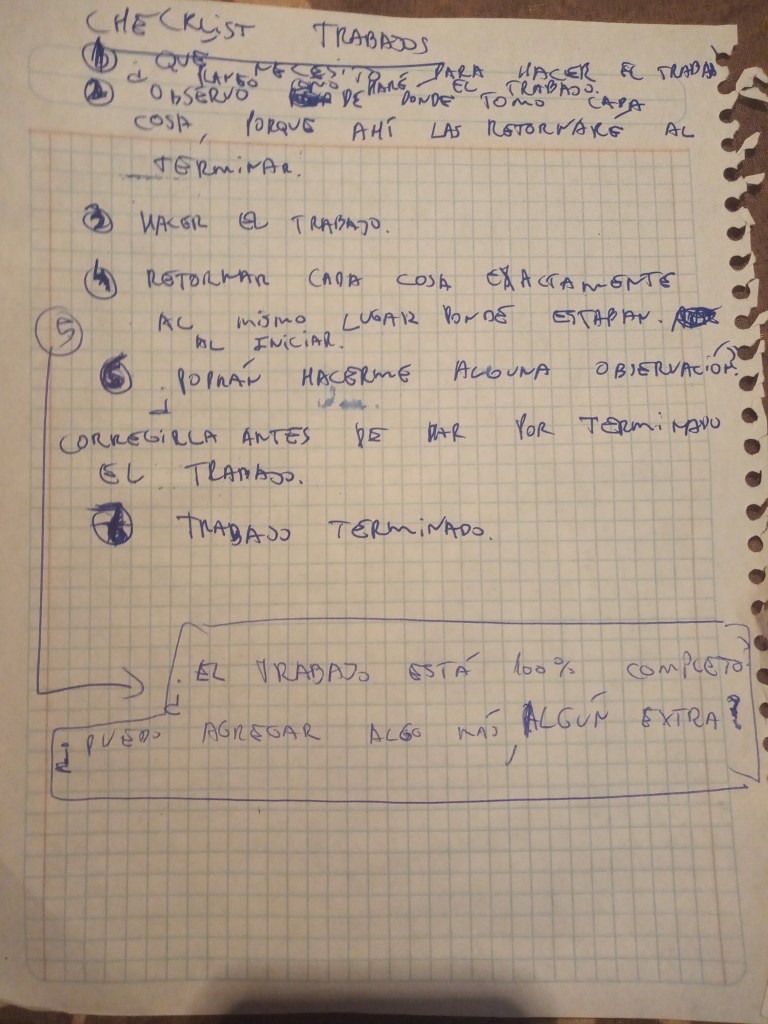 CHECKLIST TRABAJOS
1 ¿QUE NECESITO PARA HACER EL TRABAJO
PLANEO COMO HARÉ EL TRABAJO.
2 OBSERVO DE DONDE TOMO CADA
COSA, PORQUE AHÍ LAS RETORNARÉ AL
TERMINAR.
3 HACER EL TRABAJO.
4 RETORNAR CADA COSA EXACTAMENTE
AL MISMO LUGAR DONDE ESTABAN.
AL INICIAR.
5
6 ¿PODRÁN HACERME ALGUNA OBSERVACIÓN?
CORREGIRLA ANTES DE DAR POR TERMINADO
EL TRABAJO.
7 TRABAJO TERMINADO.
¿EL TRABAJO ESTÁ 100% COMPLETO?
¿PUEDO AGREGAR ALGO MÁS, ALGÚN EXTRA?